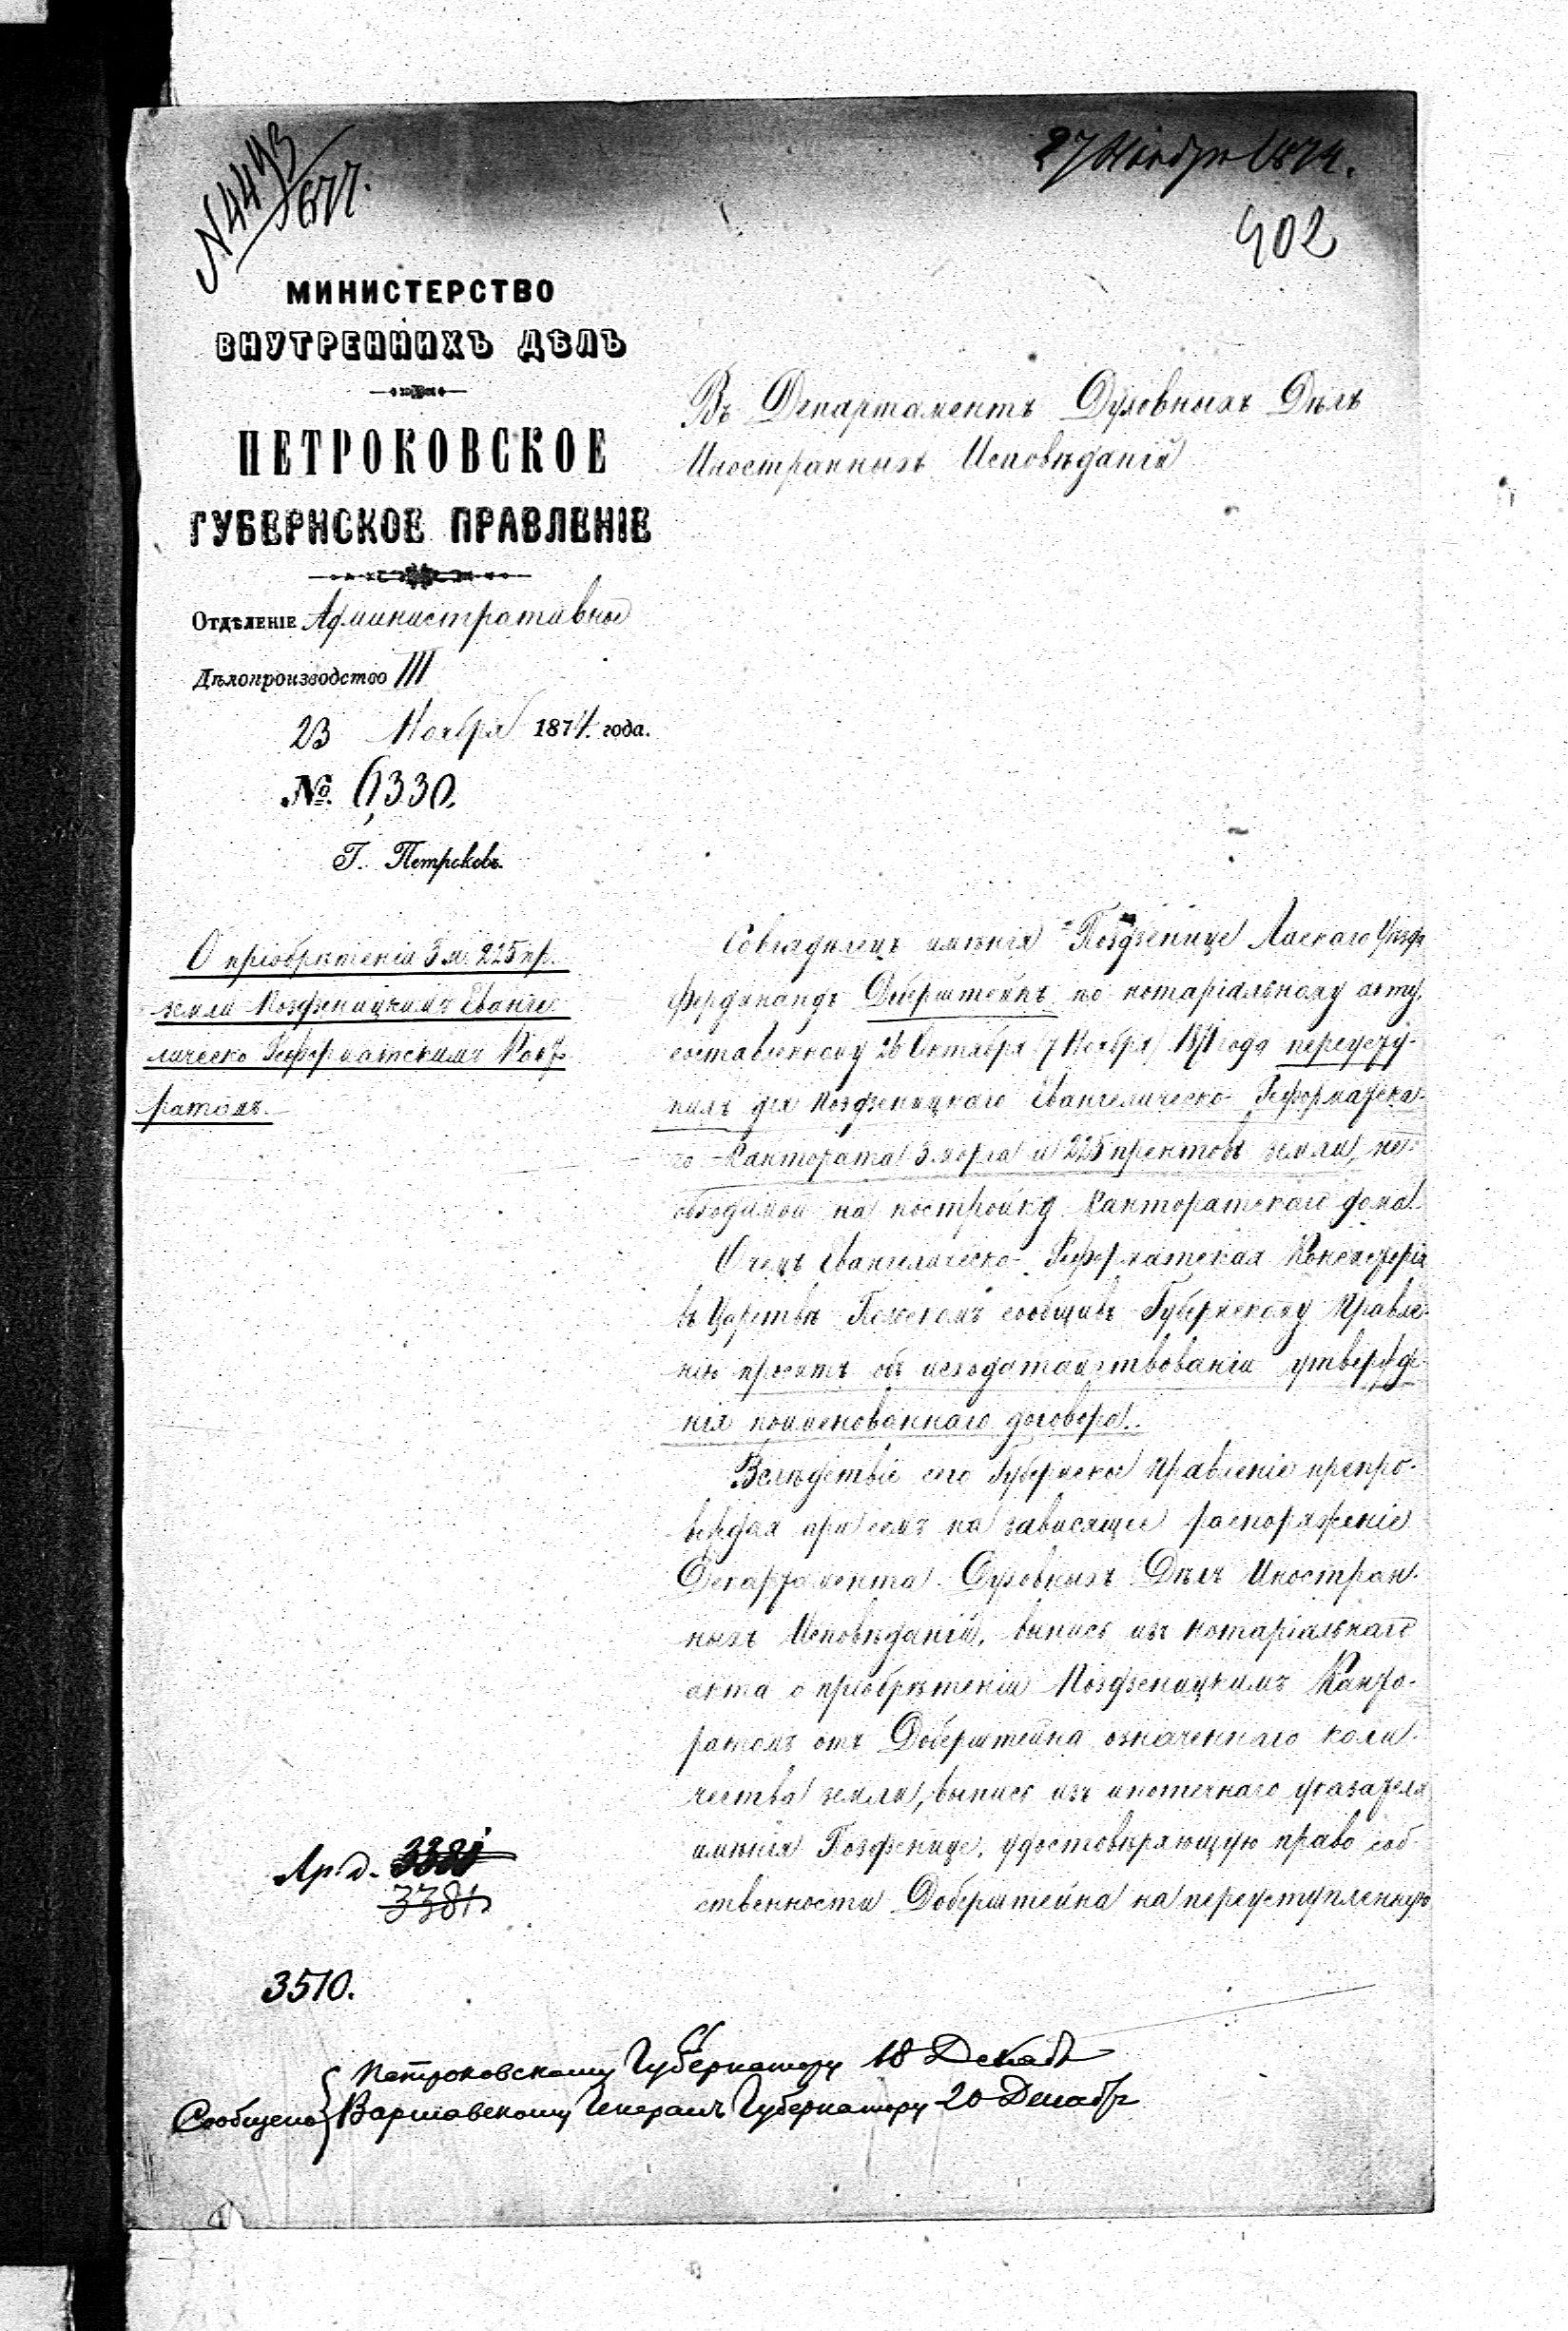 27 Ноября 1874.
402
МИНИСТЕРСТВО
ВНУТРЕННИХЪ ДѢЛЪ
ПЕТРОКОВСКОЕ
ГУБЕРНСКОЕ ПРАВЛЕНІЕ
Отдѣленіе Административное
Дѣлопроизводство III
23 Ноября 1874. года.
№ 6330.
Г. Петроковъ.
О пріобрѣтеніи 3 м. 225 пр.
земли Поздзеницкимъ Еванге-
лическо Реформатскимъ Канто-
ратомъ.
Въ Департаментъ Духовныхъ Дѣлъ
Иностранныхъ Исповѣданій
Совладѣлецъ имѣнія Поздзенице Ласкаго Уѣзда
Фердинандъ Доберштейнъ по нотаріальному акту,
составленному 26 Октября /7 Ноября/ 1871 года переусту-
пилъ для Поздзеницкаго Евангелическо-Реформатска-
го Кантората 3 морга и 225 прентовъ земли, не-
обходимой на постройку Канторатскаго дома.
Евангелическо-Реформатская Консисторія
въ Царствѣ Польскомъ сообщивъ Губернскому Правле-
нію проситъ объ исходатайствованіи утвержде-
нія поименованнаго договора.
Вслѣдствіе сего Губернское Правленіе препро-
вождая при семъ на зависящее распоряженіе
Департамента Духовныхъ Дѣлъ Иностран-
ныхъ Исповѣданій, выпись изъ нотаріальнаго
акта о пріобрѣтеніи Поздзеницкимъ Канто-
ратомъ отъ Доберштейна означеннаго коли-
чества земли, выпись изъ ипотечнаго указателя
имѣнія Поздзенице, удостовѣряющую право соб-
ственности Доберштейна на переуступленную
3381
3381
3510.
Петроковскому Губернатору 18 Декаб
Сообщено Варшавскому Генералъ Губернатору 20 Декабр